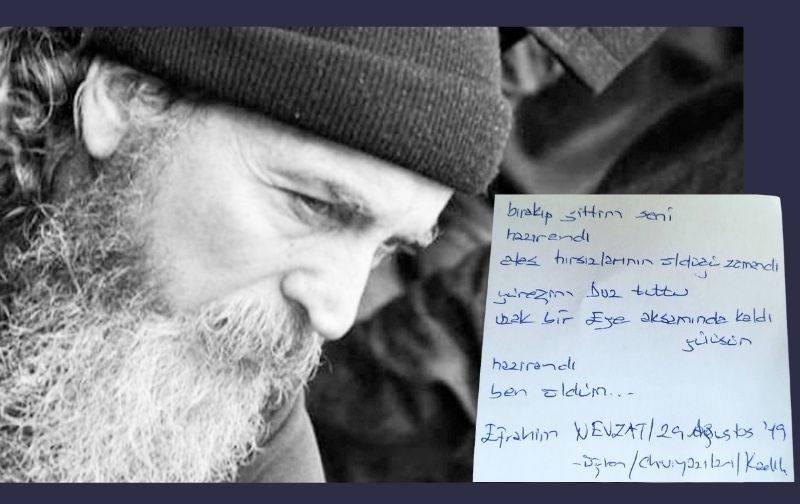 bırakıp gittim seni
hazirandı
ateş hırsızlarının öldüğü zamandı
yüreğim buz tuttu
uzak bir Ege akşamında kaldı
gülüşün
hazirandı
ben öldüm...
Efrahim NEVZAT/29 Ağustos '49